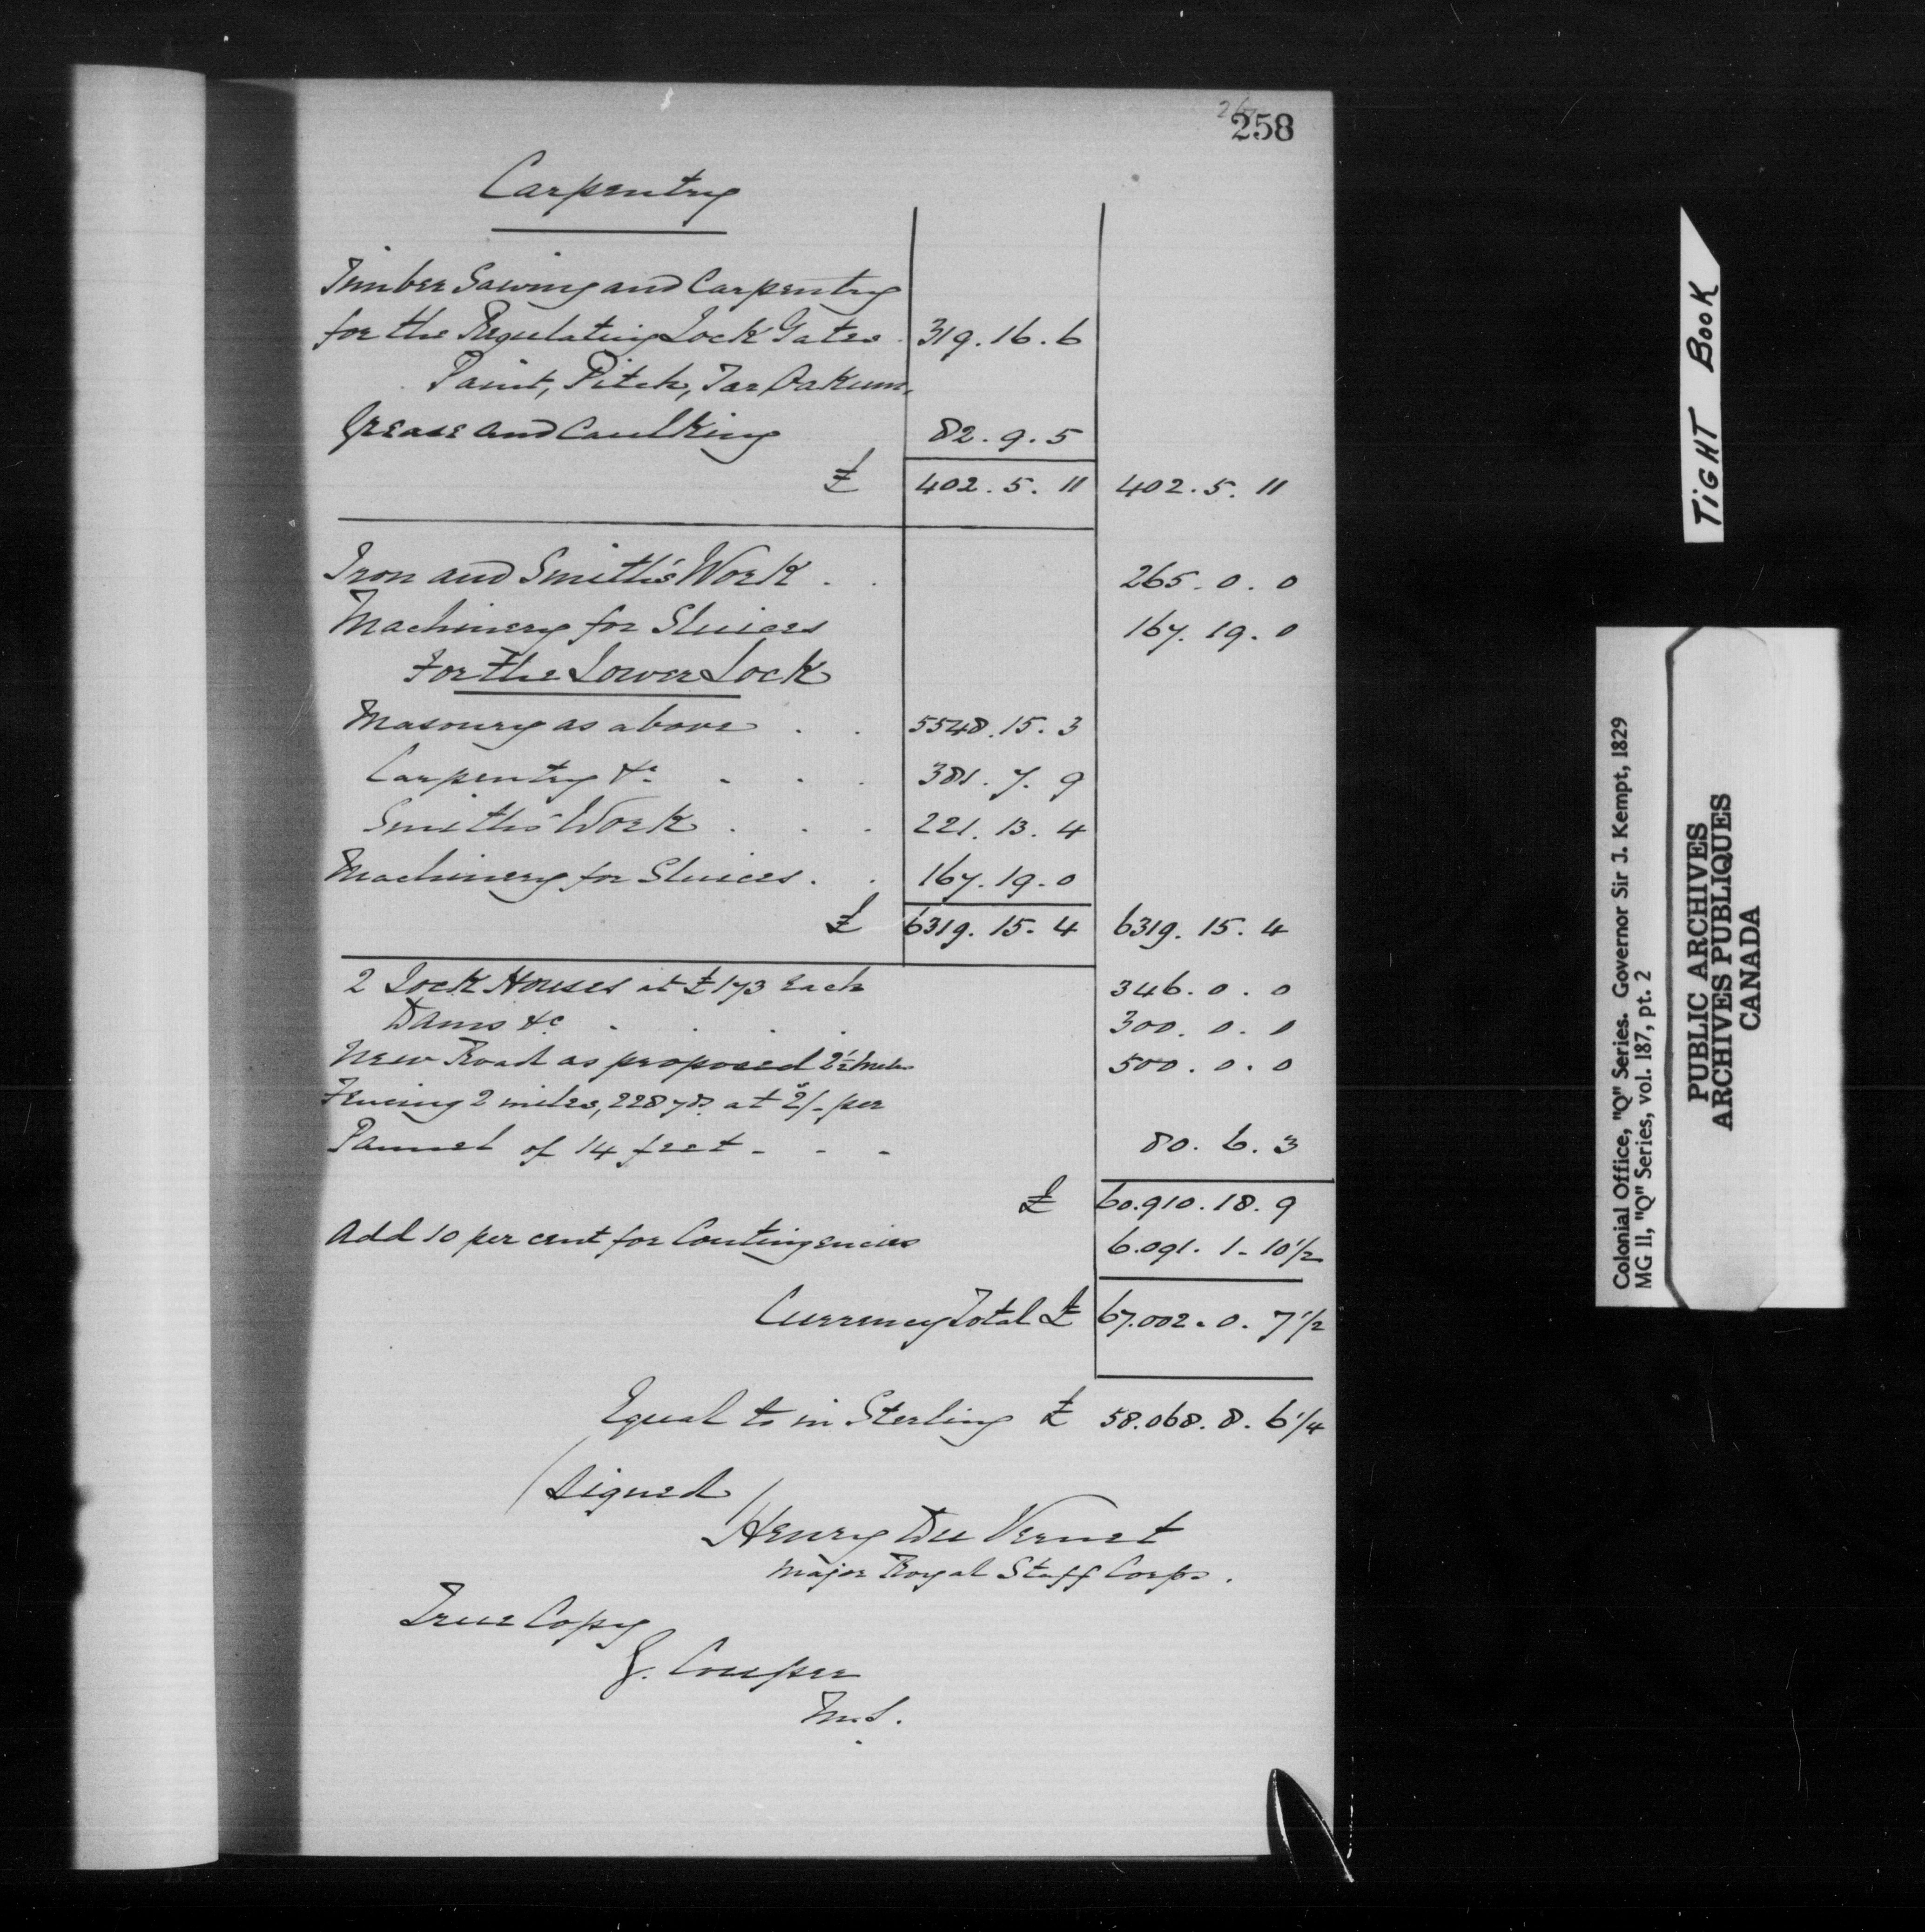 258
Carpentry
Timber Sawing and Carpentry
for the Regulating Lock Gates . 319 . 16 . 6
Paint, Pitch, Tar Oakum,
Grease and Caulking 82 . 9 . 5
£ 402 . 5 . 11 402 . 5 . 11
Iron and Smith's Work . . 265 . 0 . 0
Machinery for Sluices 167 . 19 . 0
For the Lower Lock
Masonry as above . . 5548 . 15 . 3
Carpentry &c - . . 381 . 7 . 9
Smiths' Work . . . 221 . 13 . 4
Machinery for Sluices . . 167 . 19 . 0
£ 6319 . 15 . 4 6319 . 15 . 4
2 Lock Houses at £173 Each 346 . 0 . 0
Dams &c . . . . 300 . 0 . 0
New Road as proposed 2½ miles 500 . 0 . 0
Fencing 2 miles, 228 yds. at 2/- per
Pannel of 14 feet - - - 80 . 6 . 3
£ 60.910 . 18 . 9
Add 10 per cent for Contingencies 6.091 . 1 - 10½
Currency Total £ 67.002 . 0 . 7½
Equal to in Sterling £ 58.068 . 8 . 6¼
(Signed)
Henry Du Vernet
Major Royal Staff Corps.
True Copy
G. Couper
M.S.
TIGHT BOOK
Colonial Office, "Q" Series. Governor Sir J. Kempt, 1829
MG 11, "Q" Series, vol. 187, pt. 2
PUBLIC ARCHIVES
ARCHIVES PUBLIQUES
CANADA